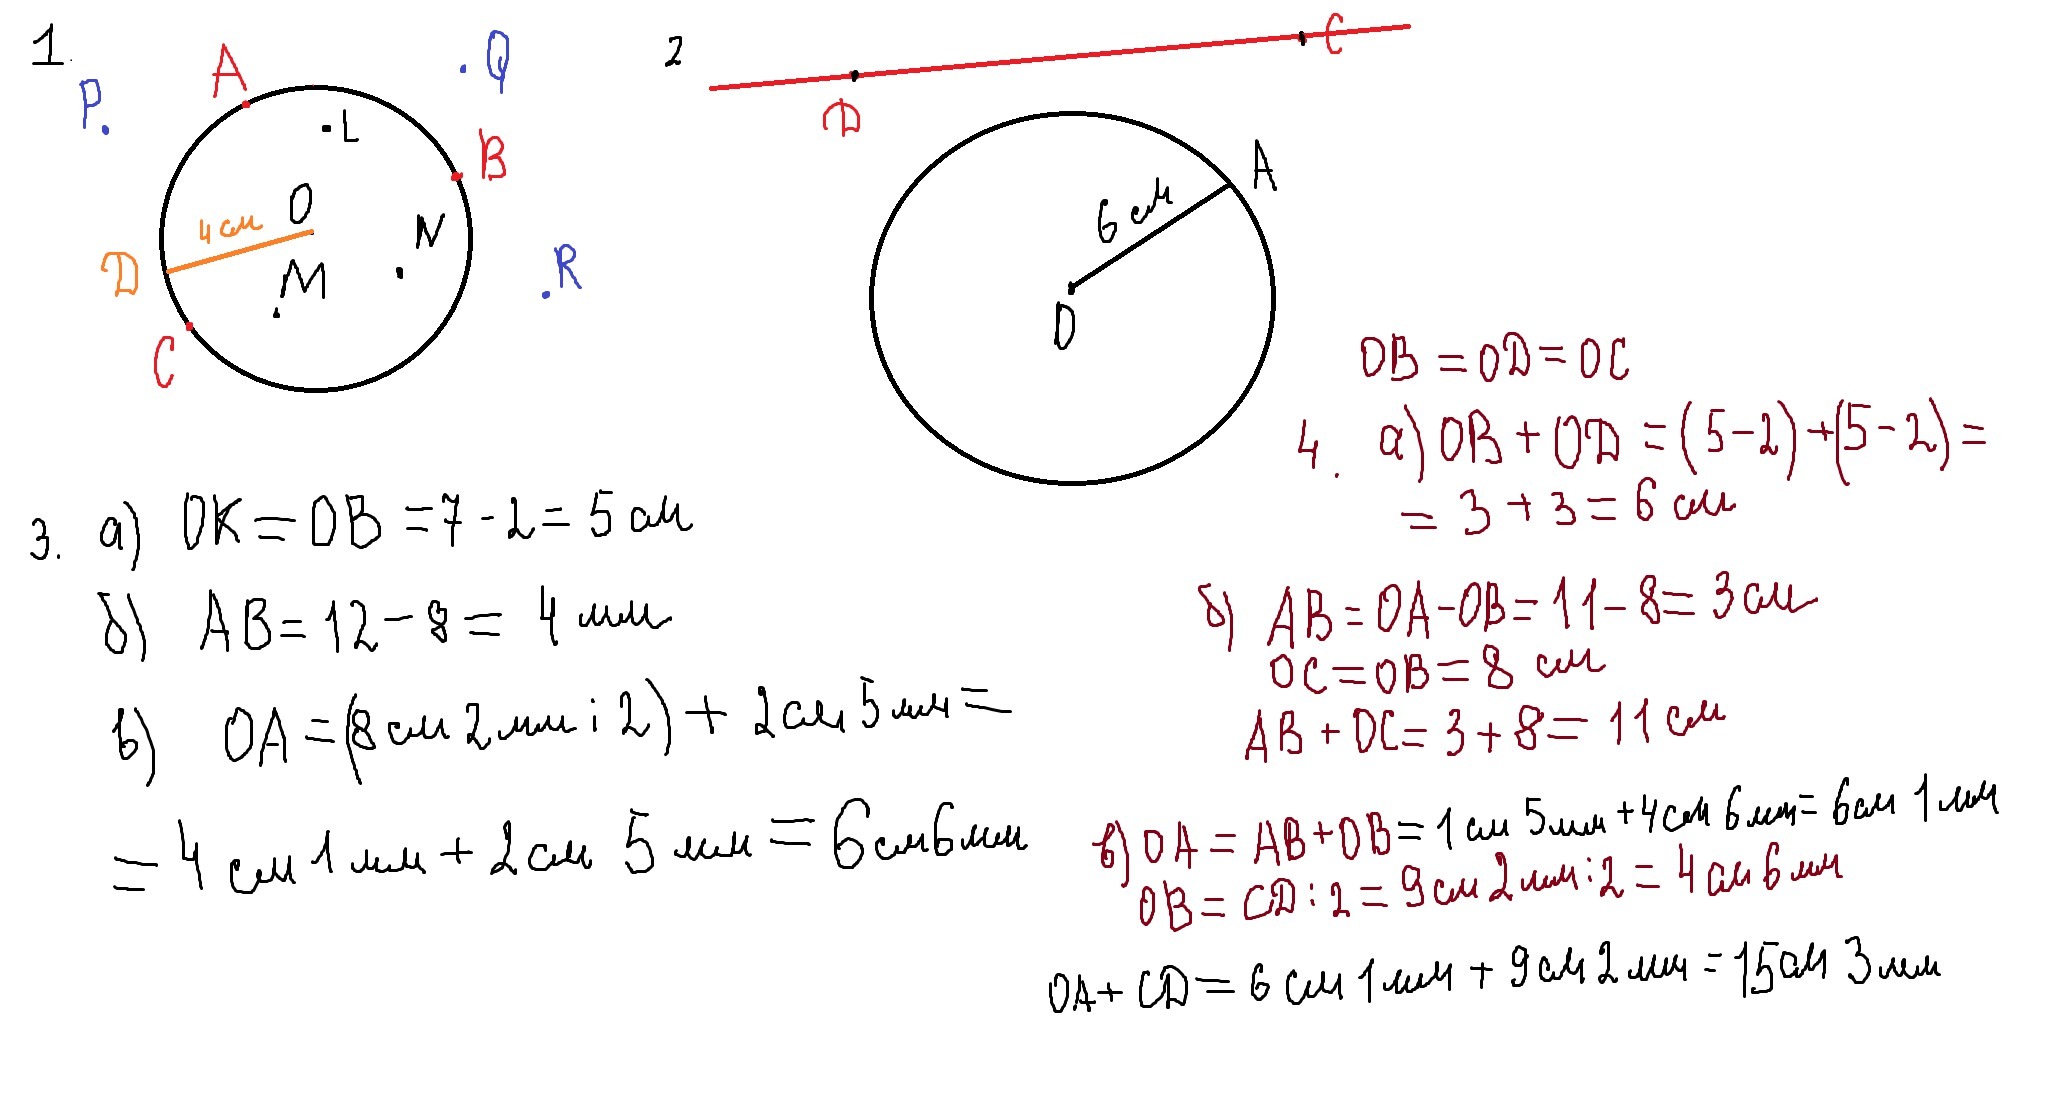 1.
A
P.
.Q
.L
B
O
4см
N
D
M
.R
C
2
C
D
A
6 см
O
3. а) OK = OB = 7 - 2 = 5 см
б) AB = 12 - 8 = 4 мм
в) OA = (8 см 2 мм : 2) + 2 см 5 мм =
= 4 см 1 мм + 2 см 5 мм = 6 см 6 мм
OB = OD = OC
4. а) OB + OD = (5 - 2) + (5 - 2) =
= 3 + 3 = 6 см
б) AB = OA - OB = 11 - 8 = 3 см
OC = OB = 8 см
AB + OC = 3 + 8 = 11 см
в) OA = AB + OB = 1 см 5 мм + 4 см 6 мм = 6 см 1 мм
OB = CD : 2 = 9 см 2 мм : 2 = 4 см 6 мм
OA + CD = 6 см 1 мм + 9 см 2 мм = 15 см 3 мм